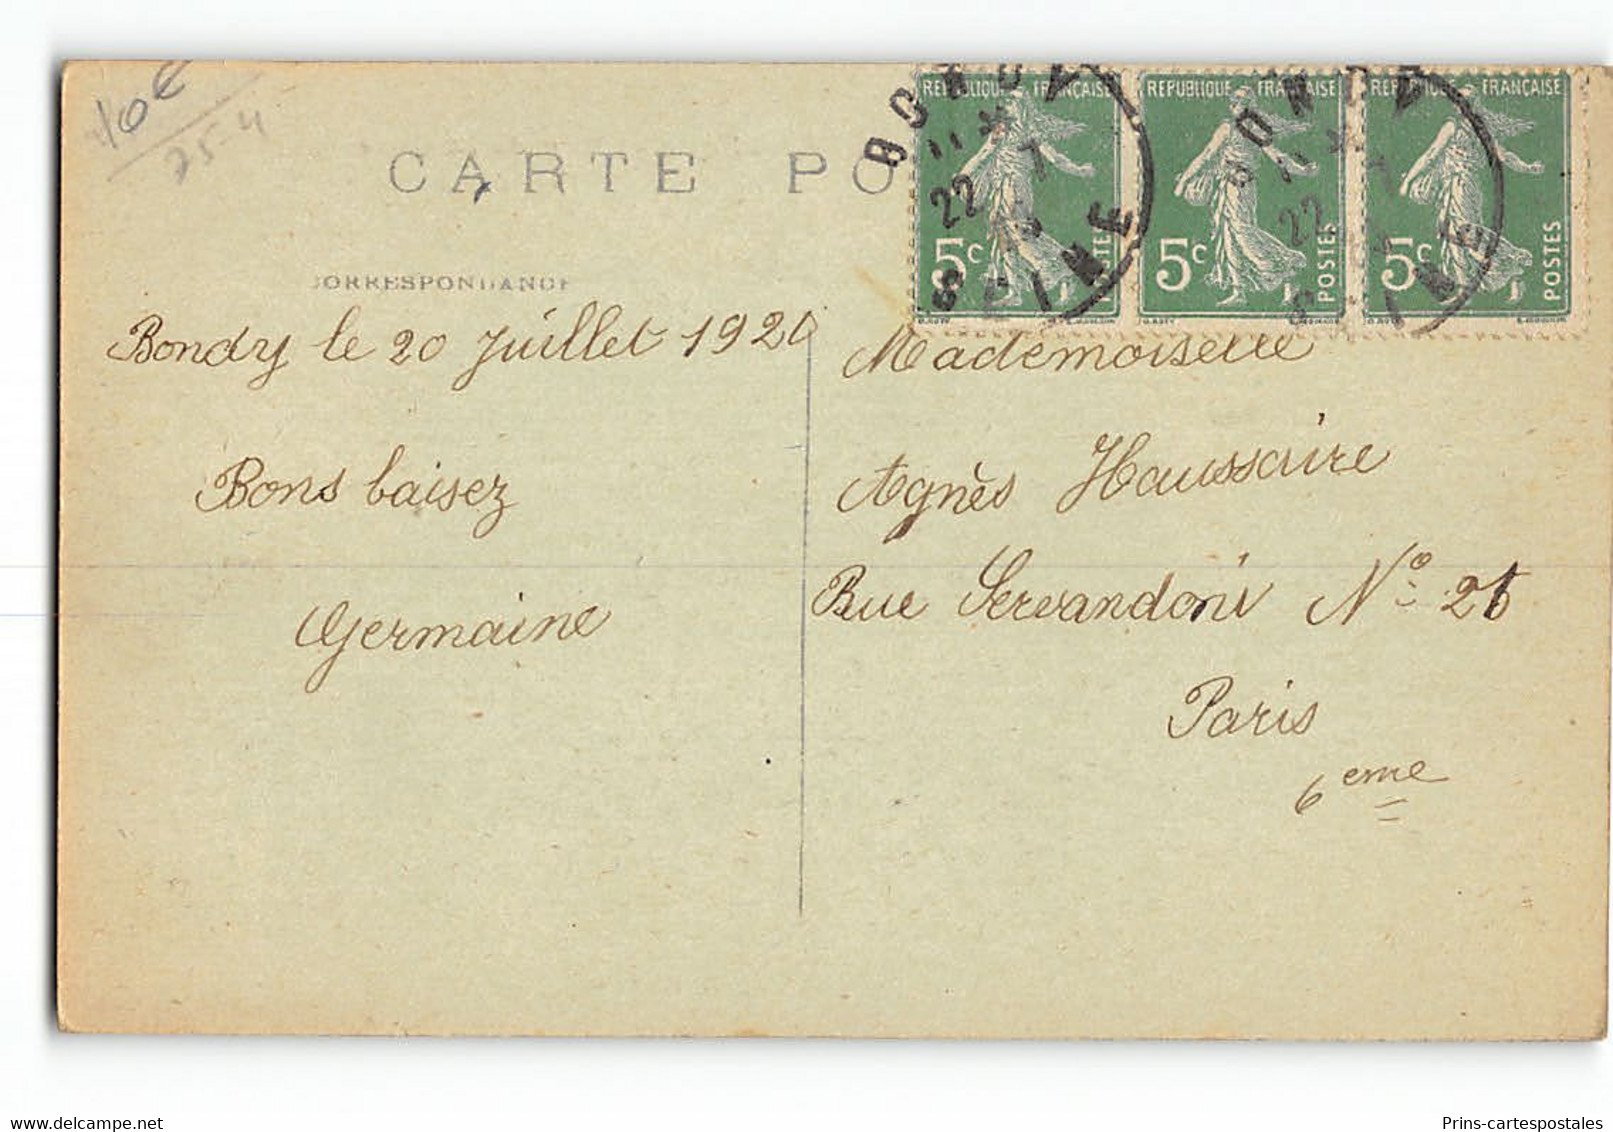 40€
75-4
CARTE PO
CORRESPONDANCE
REPUBLIQUE FRANÇAISE
5c
POSTES
REPUBLIQUE FRANÇAISE
5c
POSTES
REPUBLIQUE FRANÇAISE
5c
POSTES
BONDY
22 7
SEINE
BONDY
22
SEINE
Bondy le 20 Juillet 1920
Bons baisez
Germaine
Mademoiselle
Agnès Haussaire
Rue Servandoni No 26
Paris
6 eme
www.delcampe.net
Prins-cartespostales